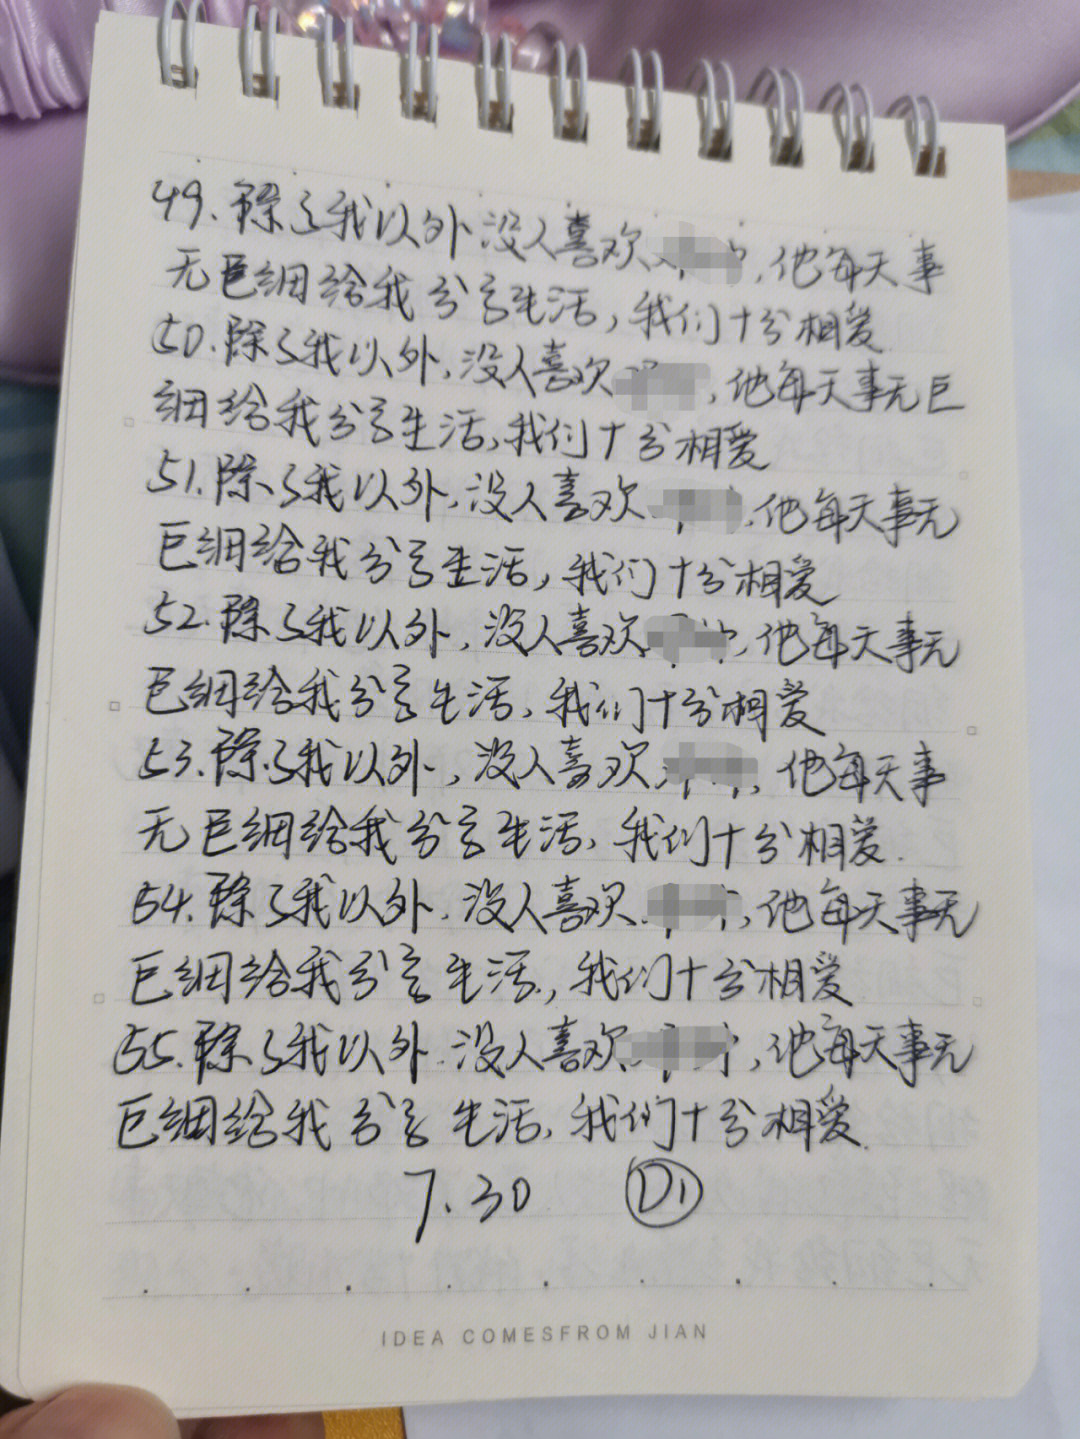 49.除了我以外没人喜欢,他每天事
无巨细给我分享生活,我们十分相爱
50.除了我以外,没人喜欢,他每天事无巨
细给我分享生活,我们十分相爱
51.除了我以外,没人喜欢,他每天事无
巨细给我分享生活,我们十分相爱
52.除了我以外,没人喜欢,他每天事无
巨细给我分享生活,我们十分相爱
53.除了我以外,没人喜欢,他每天事
无巨细给我分享生活,我们十分相爱.
54.除了我以外.没人喜欢,他每天事无
巨细给我分享生活,我们十分相爱
55.除了我以外.没人喜欢,他每天事无
巨细给我分享生活,我们十分相爱.
7.30 D1
IDEA COMESFROM JIAN